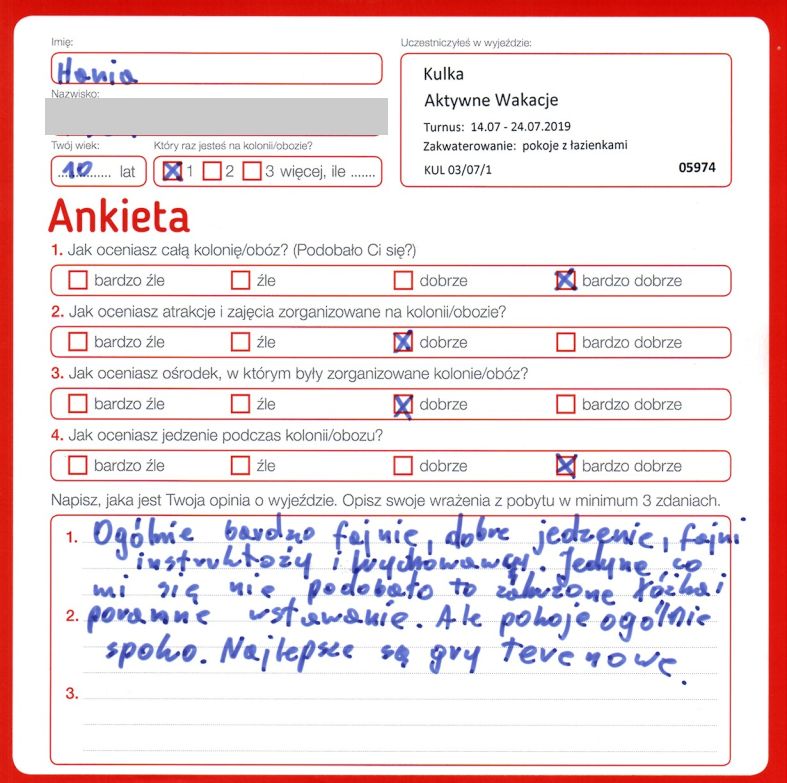 Imię:
Hania
Nazwisko:
Twój wiek:
10 lat
Który raz jesteś na kolonii/obozie?
1 2 3 więcej, ile .......
Uczestniczyłeś w wyjeździe:
Kulka
Aktywne Wakacje
Turnus: 14.07 - 24.07.2019
Zakwaterowanie: pokoje z łazienkami
KUL 03/07/1 05974
Ankieta
1. Jak oceniasz całą kolonię/obóz? (Podobało Ci się?)
bardzo źle źle dobrze bardzo dobrze
2. Jak oceniasz atrakcje i zajęcia zorganizowane na kolonii/obozie?
bardzo źle źle dobrze bardzo dobrze
3. Jak oceniasz ośrodek, w którym były zorganizowane kolonie/obóz?
bardzo źle źle dobrze bardzo dobrze
4. Jak oceniasz jedzenie podczas kolonii/obozu?
bardzo źle źle dobrze bardzo dobrze
Napisz, jaka jest Twoja opinia o wyjeździe. Opisz swoje wrażenia z pobytu w minimum 3 zdaniach.
1. Ogólnie bardzo fajnie, dobre jedzenie, fajni
instruktoży i wychowawcy. Jedyne co
mi się nie podobało to łóżka i
2. poranne wstawanie. Ale pokoje ogólnie
spoko. Najlepsze są gry terenowe.
3.